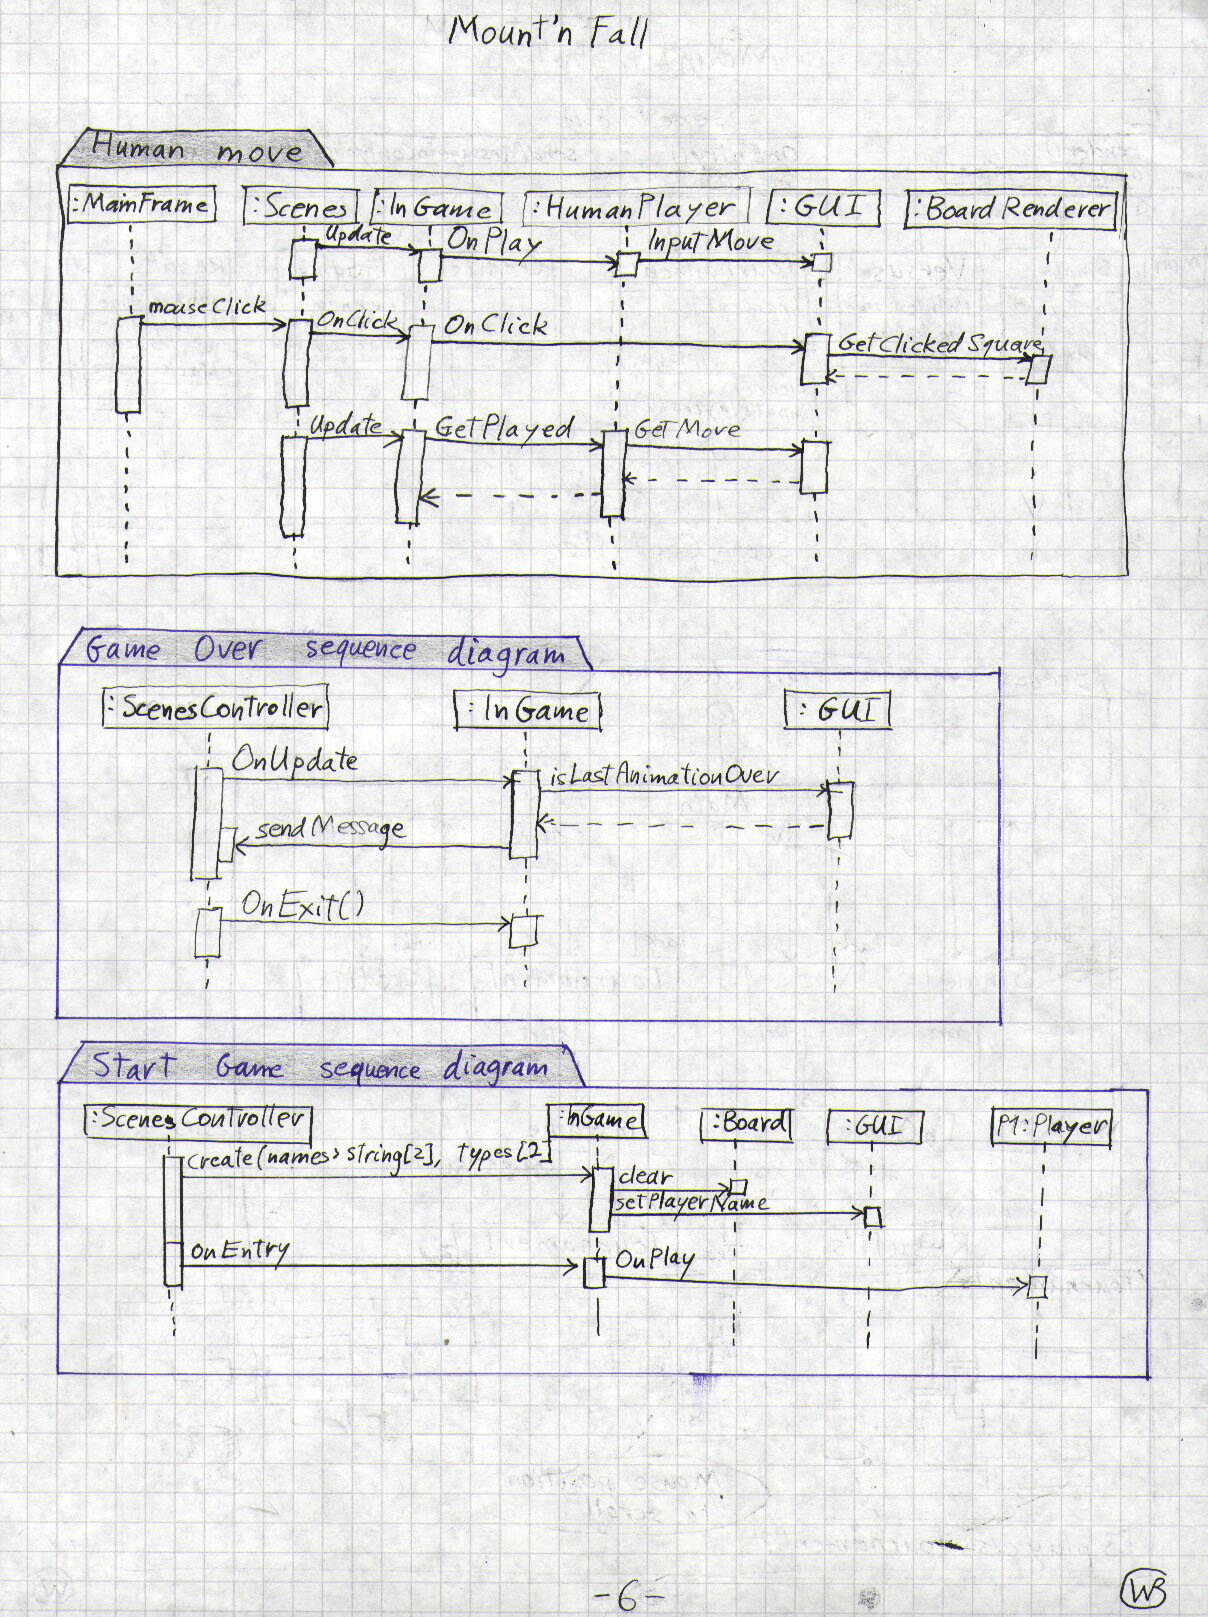 Mount'n Fall
Human move
:MainFrame :Scenes :InGame :HumanPlayer :GUI :BoardRenderer
Update OnPlay InputMove
mouseClick OnClick OnClick GetClickedSquare
Update GetPlayed GetMove
Game Over sequence diagram
:ScenesController :InGame :GUI
OnUpdate isLastAnimationOver
sendMessage
OnExit()
Start Game sequence diagram
:ScenesController :InGame :Board :GUI P1:Player
create(names>string[2], types[2]
clear
setPlayerName
onEntry OnPlay
-6-
WB